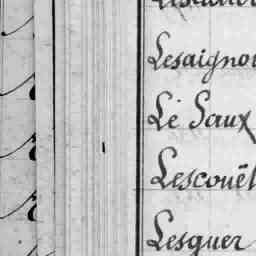 Lesaignou
Le Saux
Lescouël
Lesguer